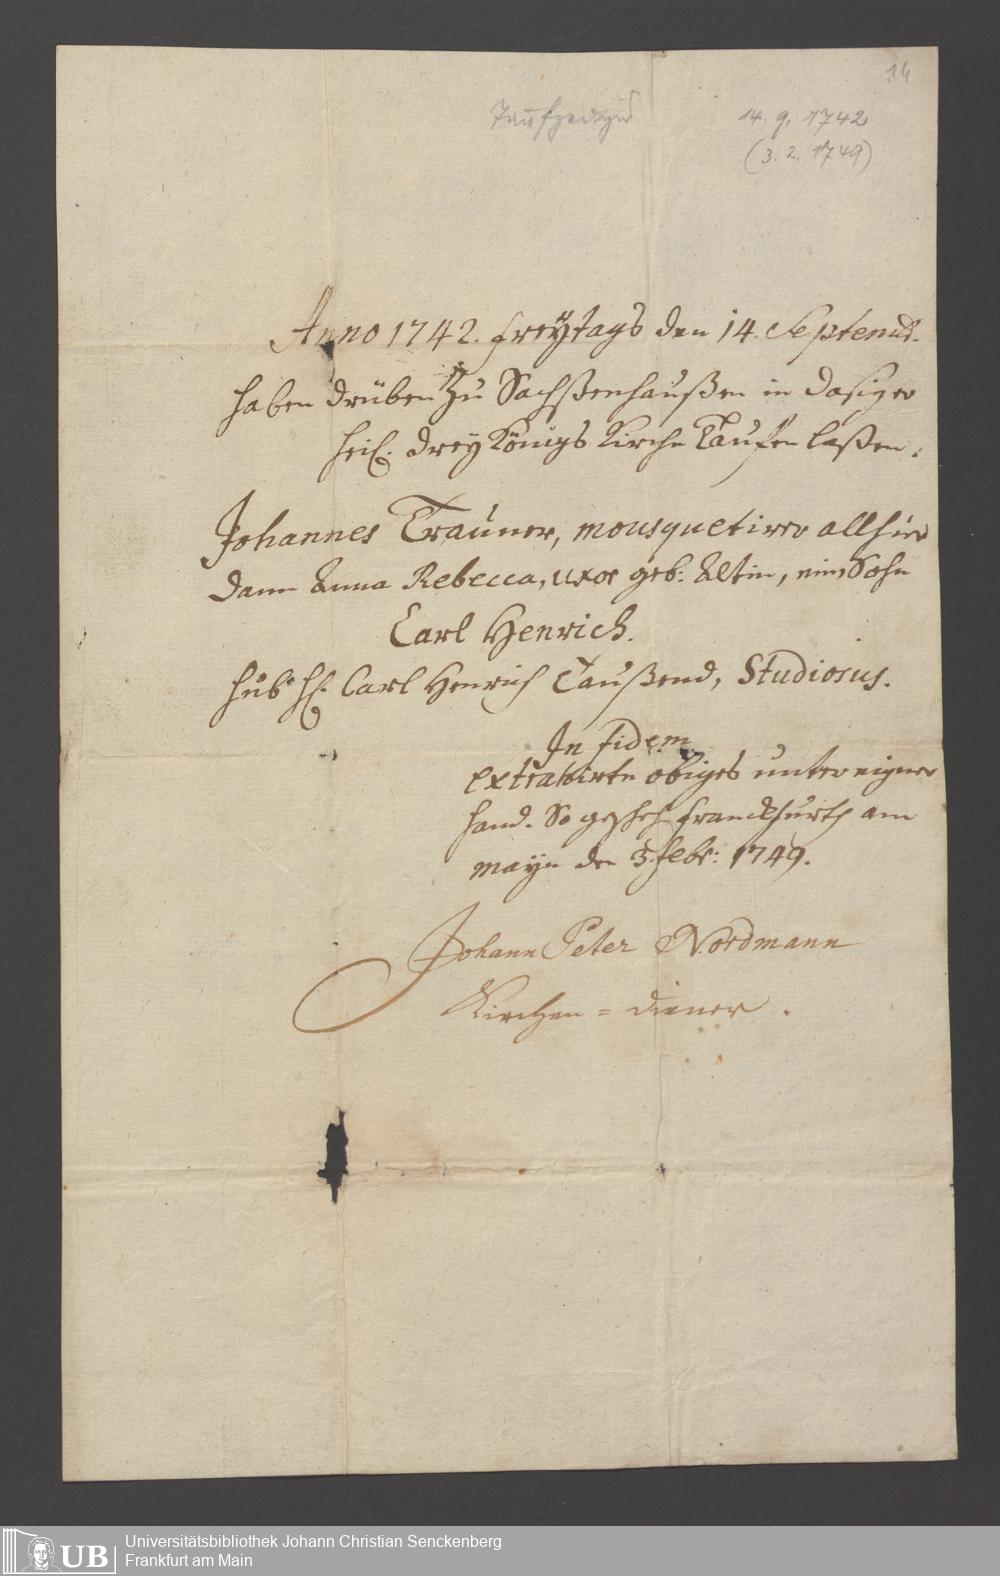 14
Taufzeugnis
14. 9. 1742
(3. 2. 1749)
Anno 1742. Freytags den 14. Septembr.
haben drüben zu Sachßenhaußen in dasiger
heil. drey Königs Kirche Taufen laßen:
Johannes Trauner, mousquetirer allhier
dann Anna Rebecca, uxor geb: Altin, ein Sohn
Carl Henrich.
hub H. Carl Henrich Taußend, Studiosus.
In fidem
extrahirte obiges unter eigner
hand. So gescheh Franckfurth am
mayn den 3. Febr: 1749.
Johann Peter Nordmann
Kirchen = diener.
UB
Universitätsbibliothek Johann Christian Senckenberg
Frankfurt am Main